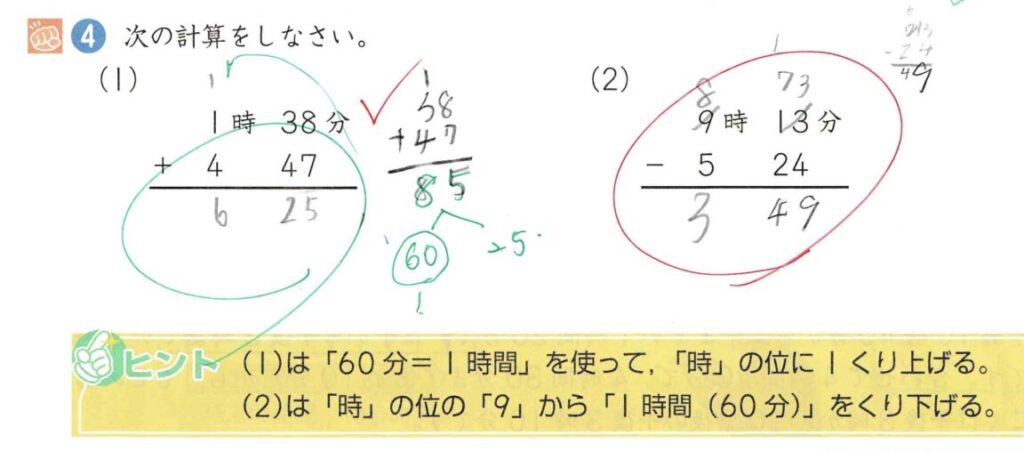 4 次の計算をしなさい。
(1)
1
1時 38分
+ 4 47
6 25
1
38
+47
85
60 25
1
(2)
1
8 73
9時 13分
- 5 24
3 49
49
ヒント (1)は「60分=1時間」を使って,「時」の位に1くり上げる。
(2)は「時」の位の「9」から「1時間(60分)」をくり下げる。